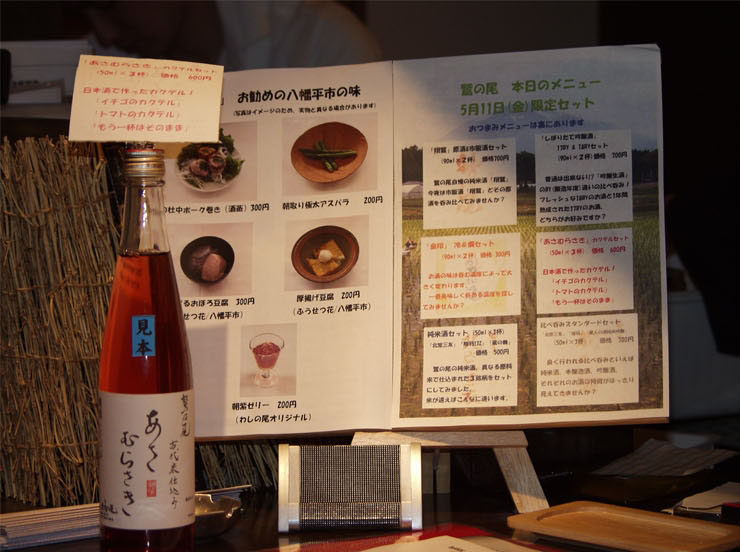 「あさむらさき」カクテルセット
(50ml)×3杯) 価格 600円
日本酒で作ったカクテル!
「イチゴのカクテル」
「トマトのカクテル」
「もう一杯はそのまま」
お勧めの八幡平市の味
(写真はイメージのため、実物と異なる場合があります)
杜中ポーク巻き(酒蒸) 300円
朝取り極太アスパラ 200円
るおぼろ豆腐 300円
せつ花/八幡平市)
厚揚げ豆腐 200円
(ふうせつ花/八幡平市)
朝紫ゼリー 200円
(わしの尾オリジナル)
鷲の尾 本日のメニュー
5月11日(金)限定セット
おつまみメニューは裏にあります
「翔鷲」原酒&市販酒セット
(90ml×2杯) 価格700円
鷲の尾自慢の純米酒「翔鷲」
今宵は市販酒「翔鷲」とその原
酒を呑み比べてみませんか?
「しぼりたて吟醸酒」
17BY & 18BYセット
(90ml×2杯) 価格 700円
普通は出来ない!?「吟醸生酒」
のBY(製造年度)違いの比べ呑み!
フレッシュな18BYのお酒と1年間
熟成された17BYのお酒。
どちらがお好みですか?
「金印」 冷&燗セット
(90ml×2杯) 価格 300円
お酒の味は呑む温度によって大
きく変わります。
一番美味しく飲める温度を探し
てみませんか?
「あさむらさき」カクテルセット
(50ml×3杯) 価格 600円
日本酒で作ったカクテル!
「イチゴのカクテル」
「トマトのカクテル」
「もう一杯はそのまま」
純米酒セット (50ml×3杯)
価格 500円
鷲の尾の純米酒。異なる原料
米で仕込まれた3銘柄をセット
にしてみました。
米が違えばこんなに違います。
比べ呑みスタンダードセット
(50ml×3杯) 価格 500円
良く行われる比べ呑みといえば
純米酒、本醸造酒、吟醸酒。
それぞれのお酒の特徴がはっきり
見えてきませんか?
見本
鷲の尾
古代米仕込み
あさ
むらさき